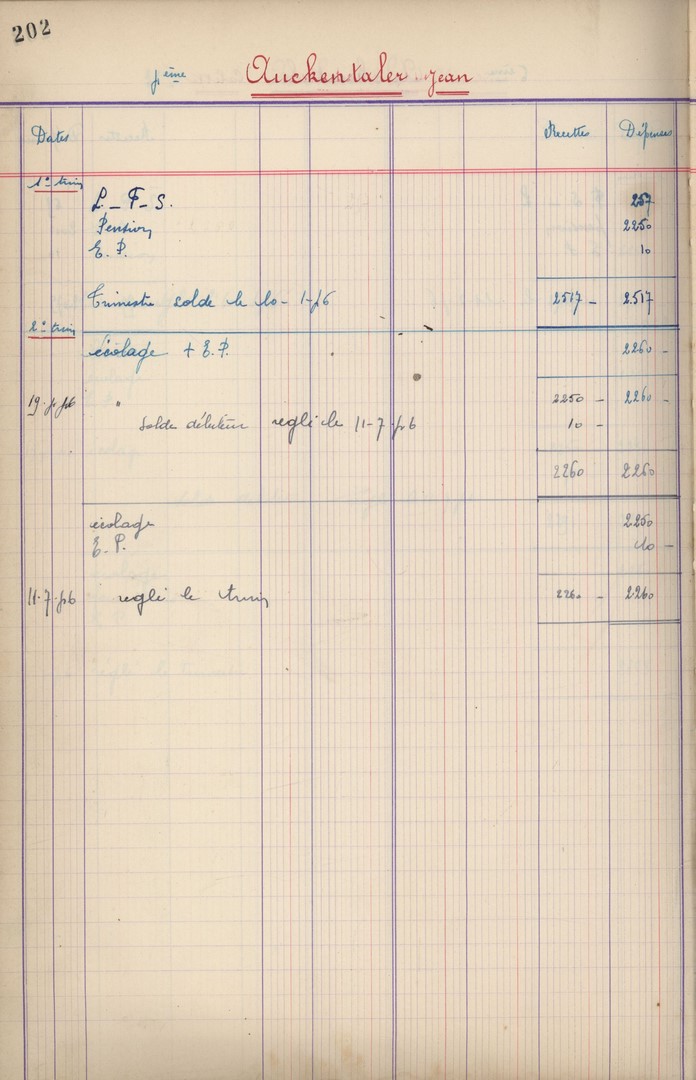 202
5ème Auckentaler Jean
Dates Recettes Dépenses
1er trim
L - F - S. 257
Pension 2250
E. P. 10
Trimestre solde le 10 - 1 - 56 2517 - 2.517
2e trim
écolage + E.P. 2260 -
19. 56 " 2250 - 2260 -
Solde débiteur reglé le 11-7-56 10 -
2260 2260
écolage 2250
E. P. 10 -
11.7.56 reglé le trim 2260 - 2260